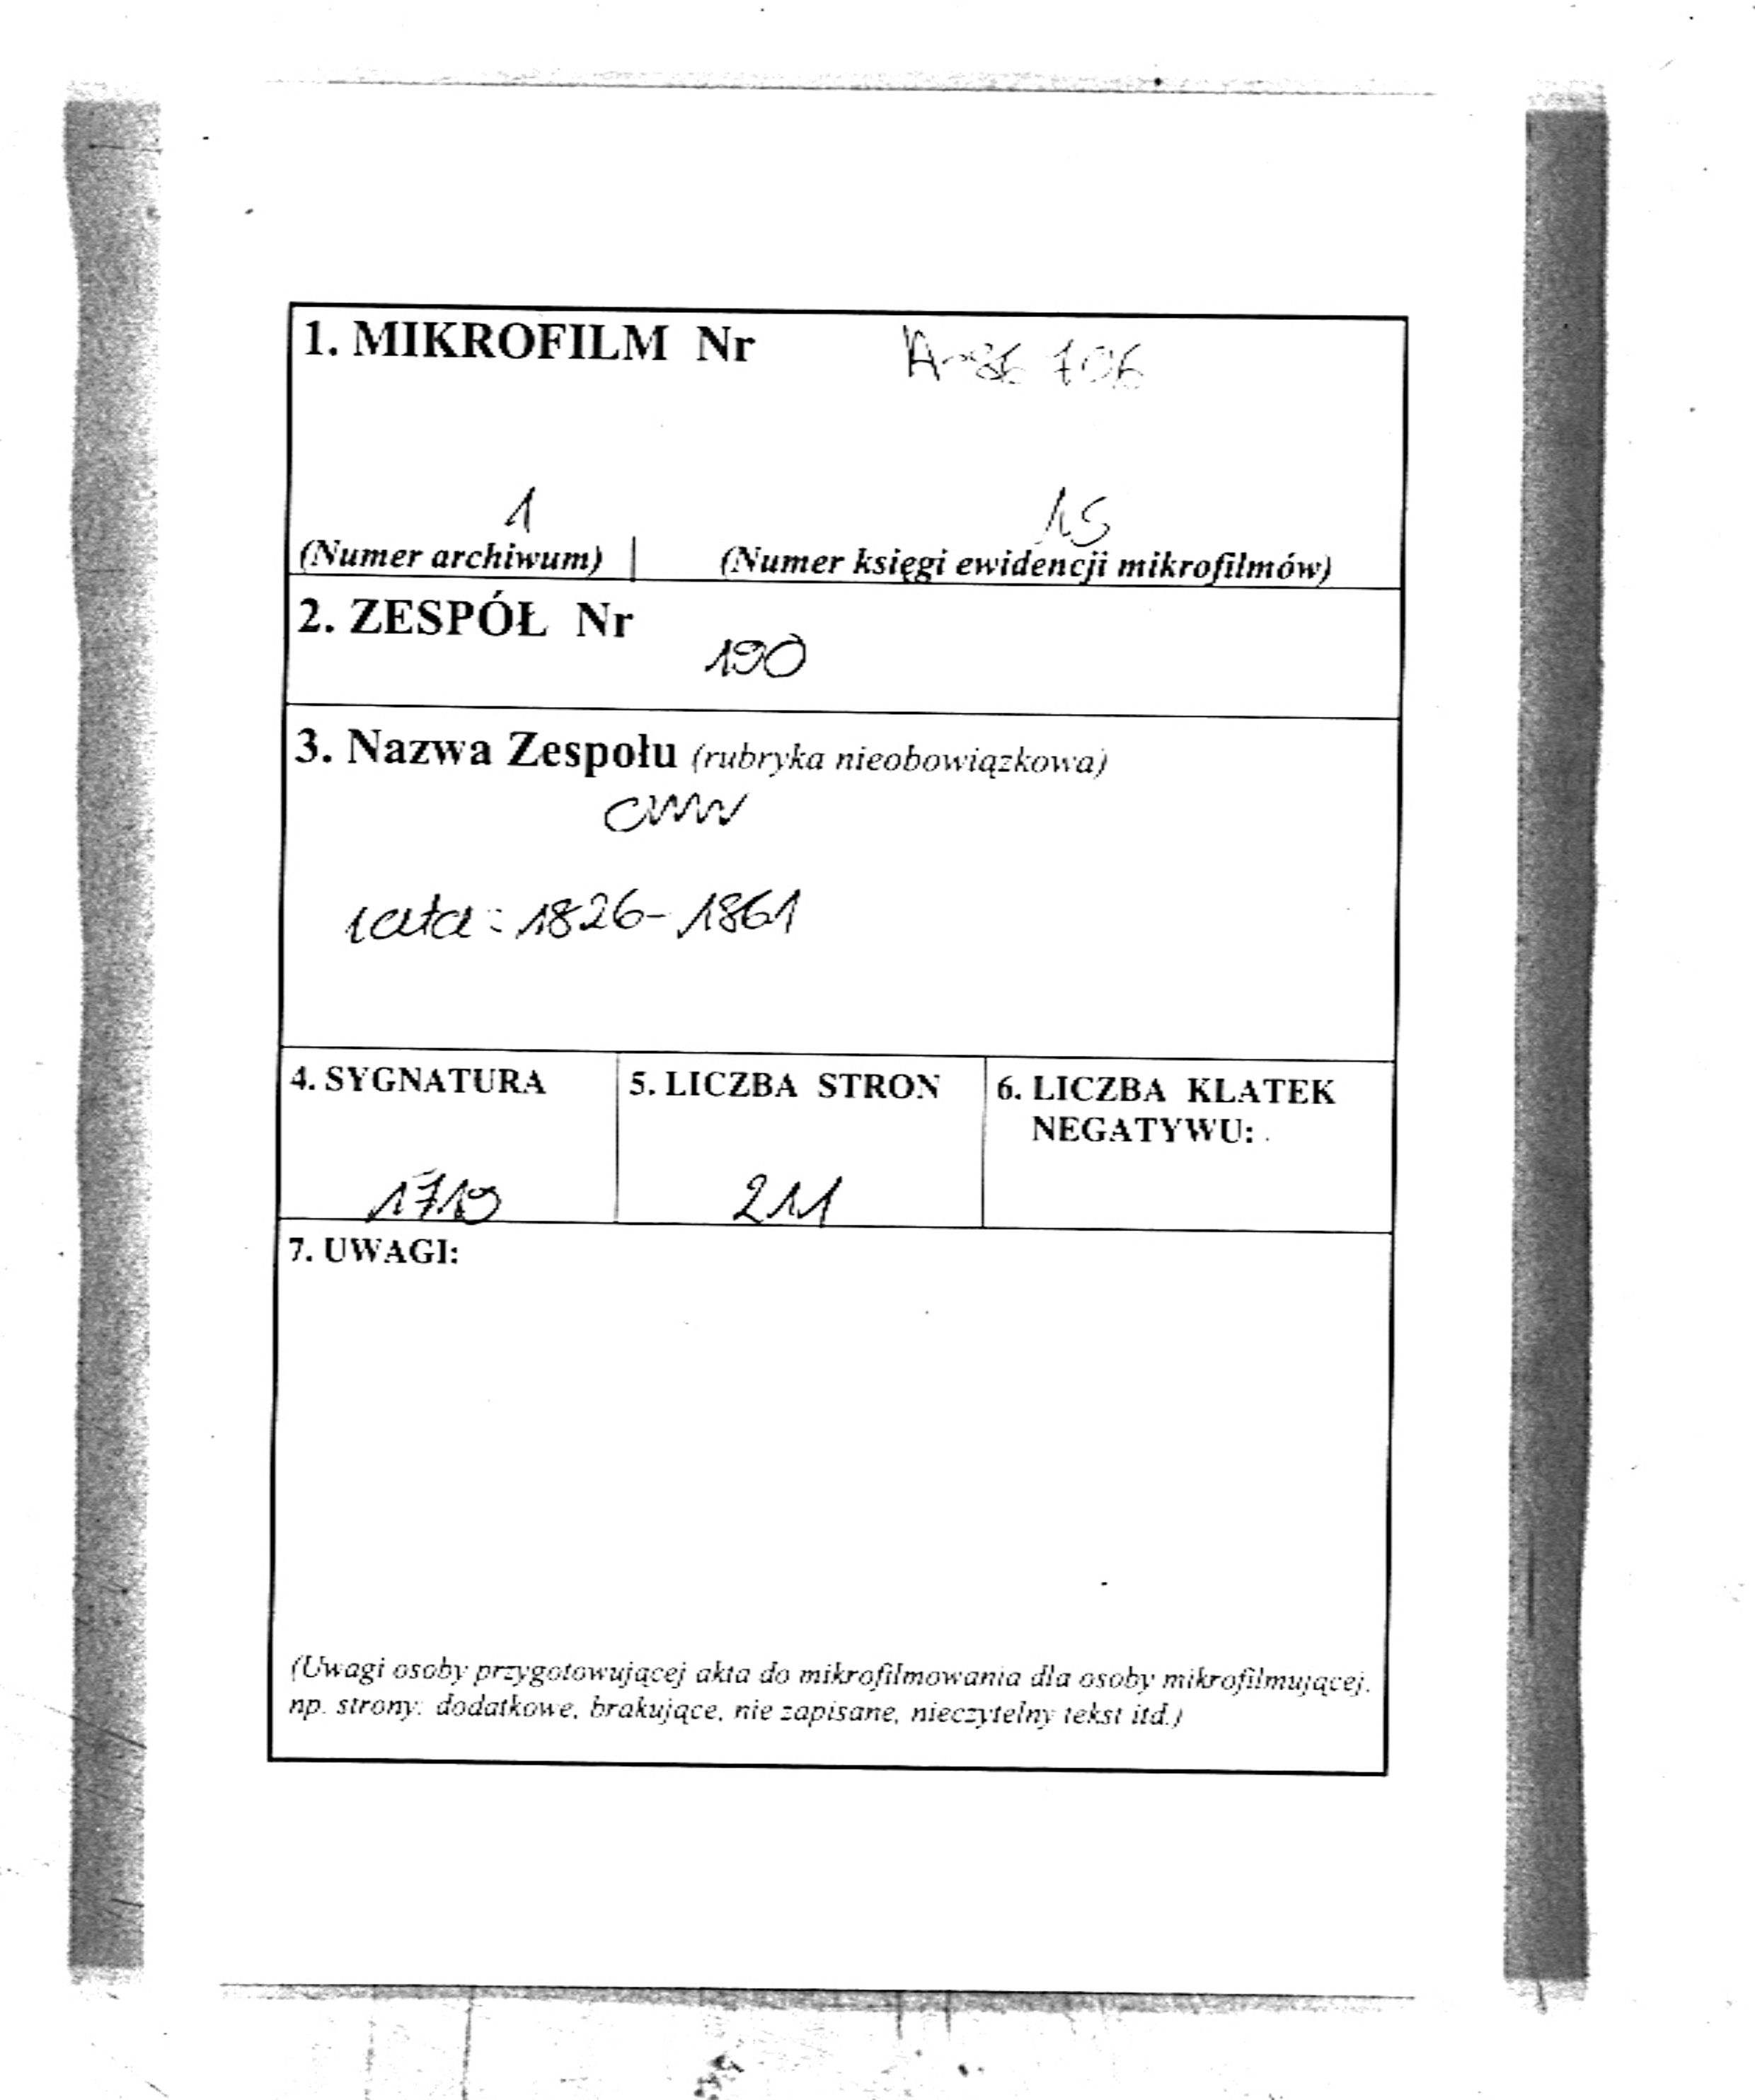 1. MIKROFILM Nr A-86 706
1 15
(Numer archiwum) | (Numer księgi ewidencji mikrofilmów)
2. ZESPÓŁ Nr
190
3. Nazwa Zespołu (rubryka nieobowiązkowa)
CWW
lata: 1826-1861
4. SYGNATURA
1719
5. LICZBA STRON
211
6. LICZBA KLATEK
NEGATYWU:
7. UWAGI:
(Uwagi osoby przygotowującej akta do mikrofilmowania dla osoby mikrofilmującej.
np. strony: dodatkowe, brakujące, nie zapisane, nieczytelny tekst itd.)